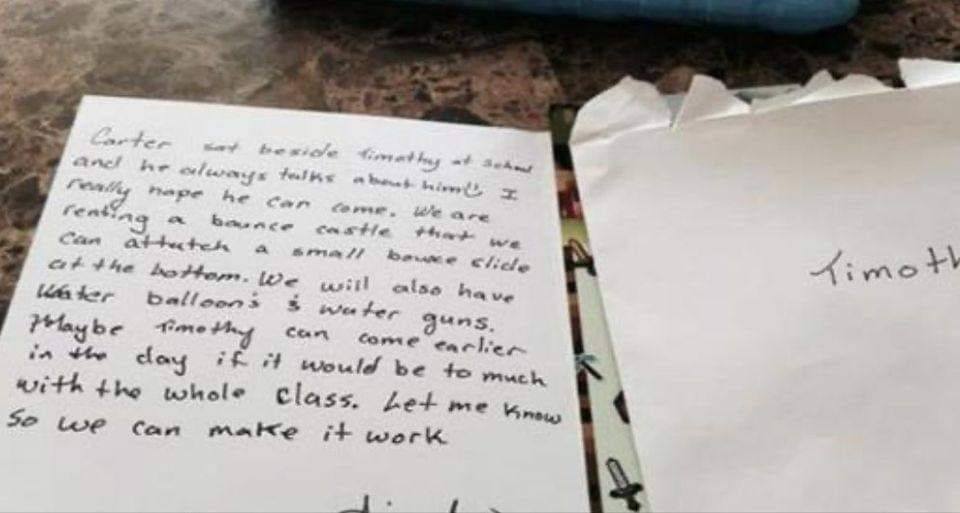 Carter sat beside Timothy at School
and he always talks about him I
really hope he can come. We are
renting a bounce castle that we
can attatch a small bouce slide
at the bottom. We will also have
Water balloon's & water guns.
Maybe Timothy can come earlier
in the day if it would be to much
with the whole class. Let me know
So we can make it work
Timoth